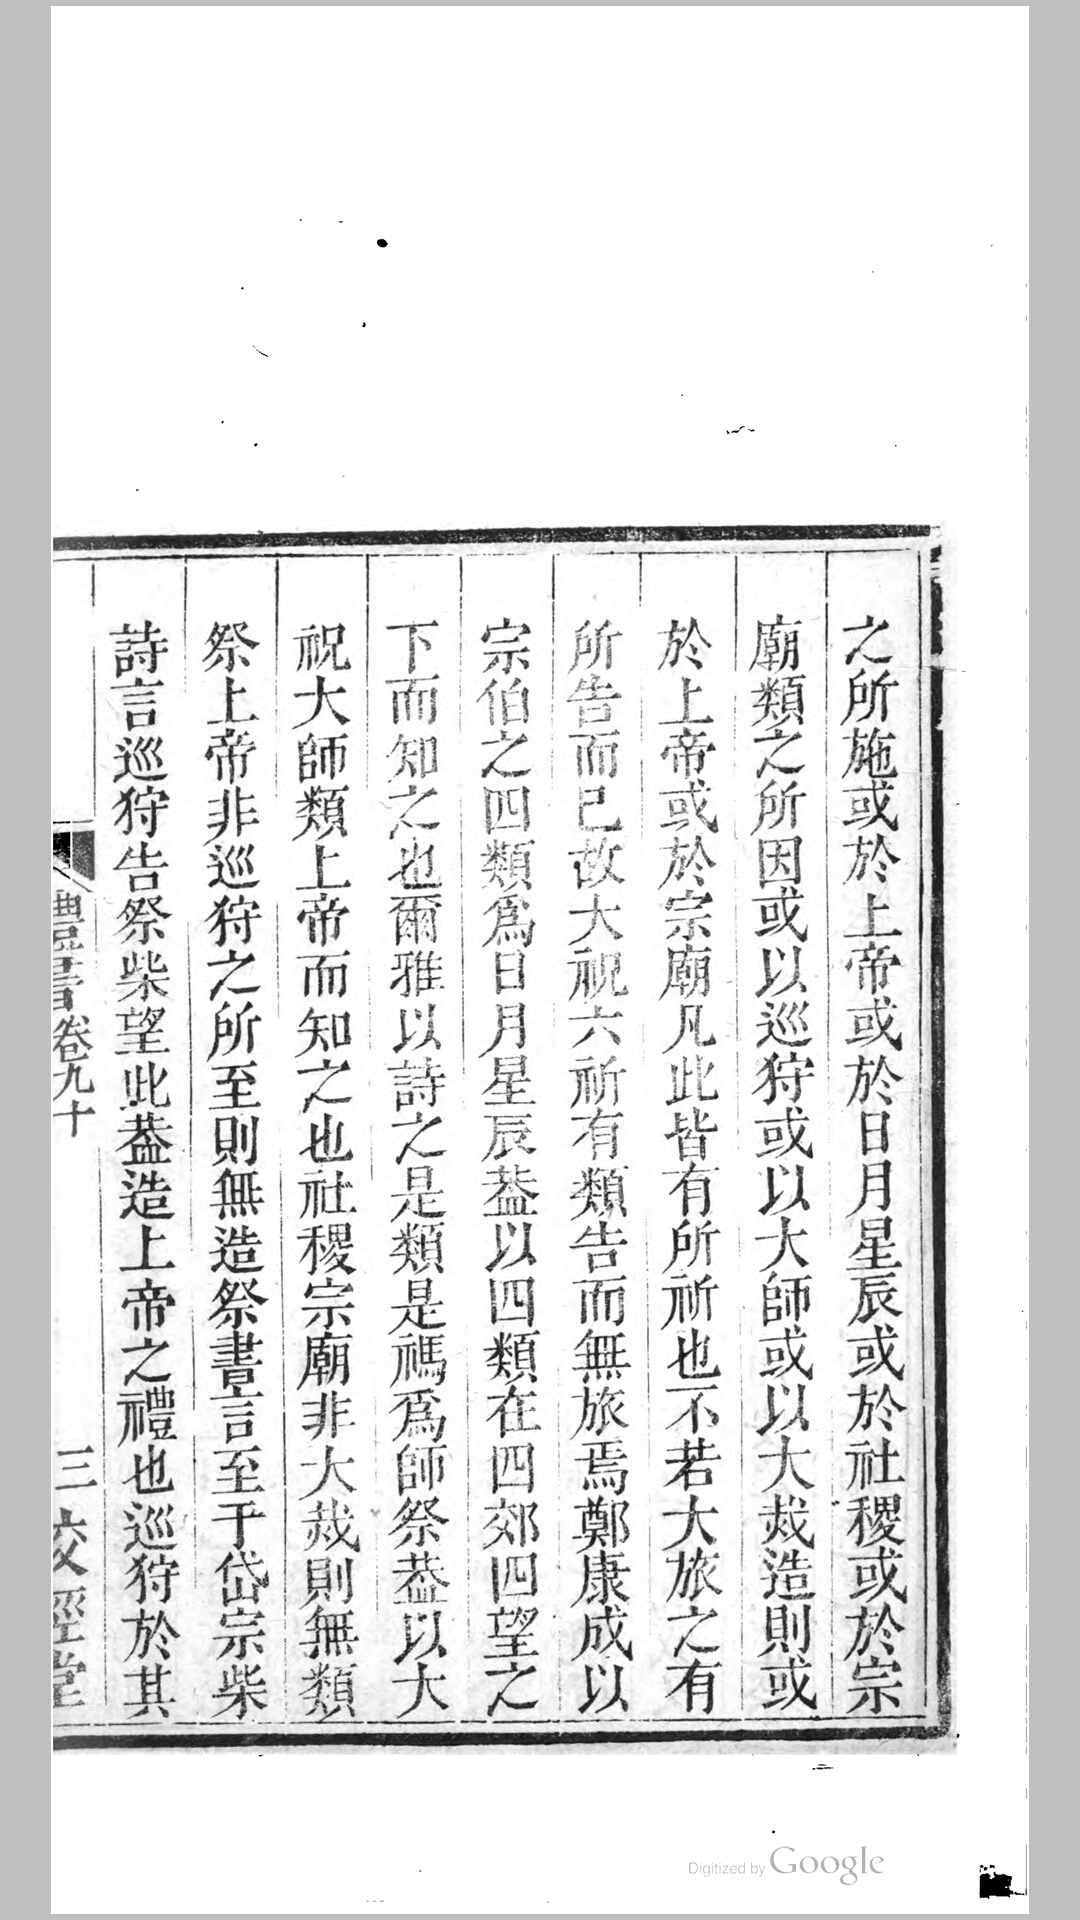 之所施或於上帝或於日月星辰或於社稷或於宗
廟類之所因或以巡狩或以大師或以大烖造則或
於上帝或於宗廟凡此皆有所祈也不若大旅之有
所告而已故大祝六祈有類告而無旅焉鄭康成以
宗伯之四類爲日月星辰葢以四類在四郊四望之
下而知之也爾雅以詩之是類是禡爲師祭葢以大
祝大師類上帝而知之也社稷宗廟非大烖則無類
祭上帝非巡狩之所至則無造祭書言至于岱宗柴
詩言巡狩告祭柴望此葢造上帝之禮也巡狩於其
禮書卷九十
三
校經堂
Digitized by Google